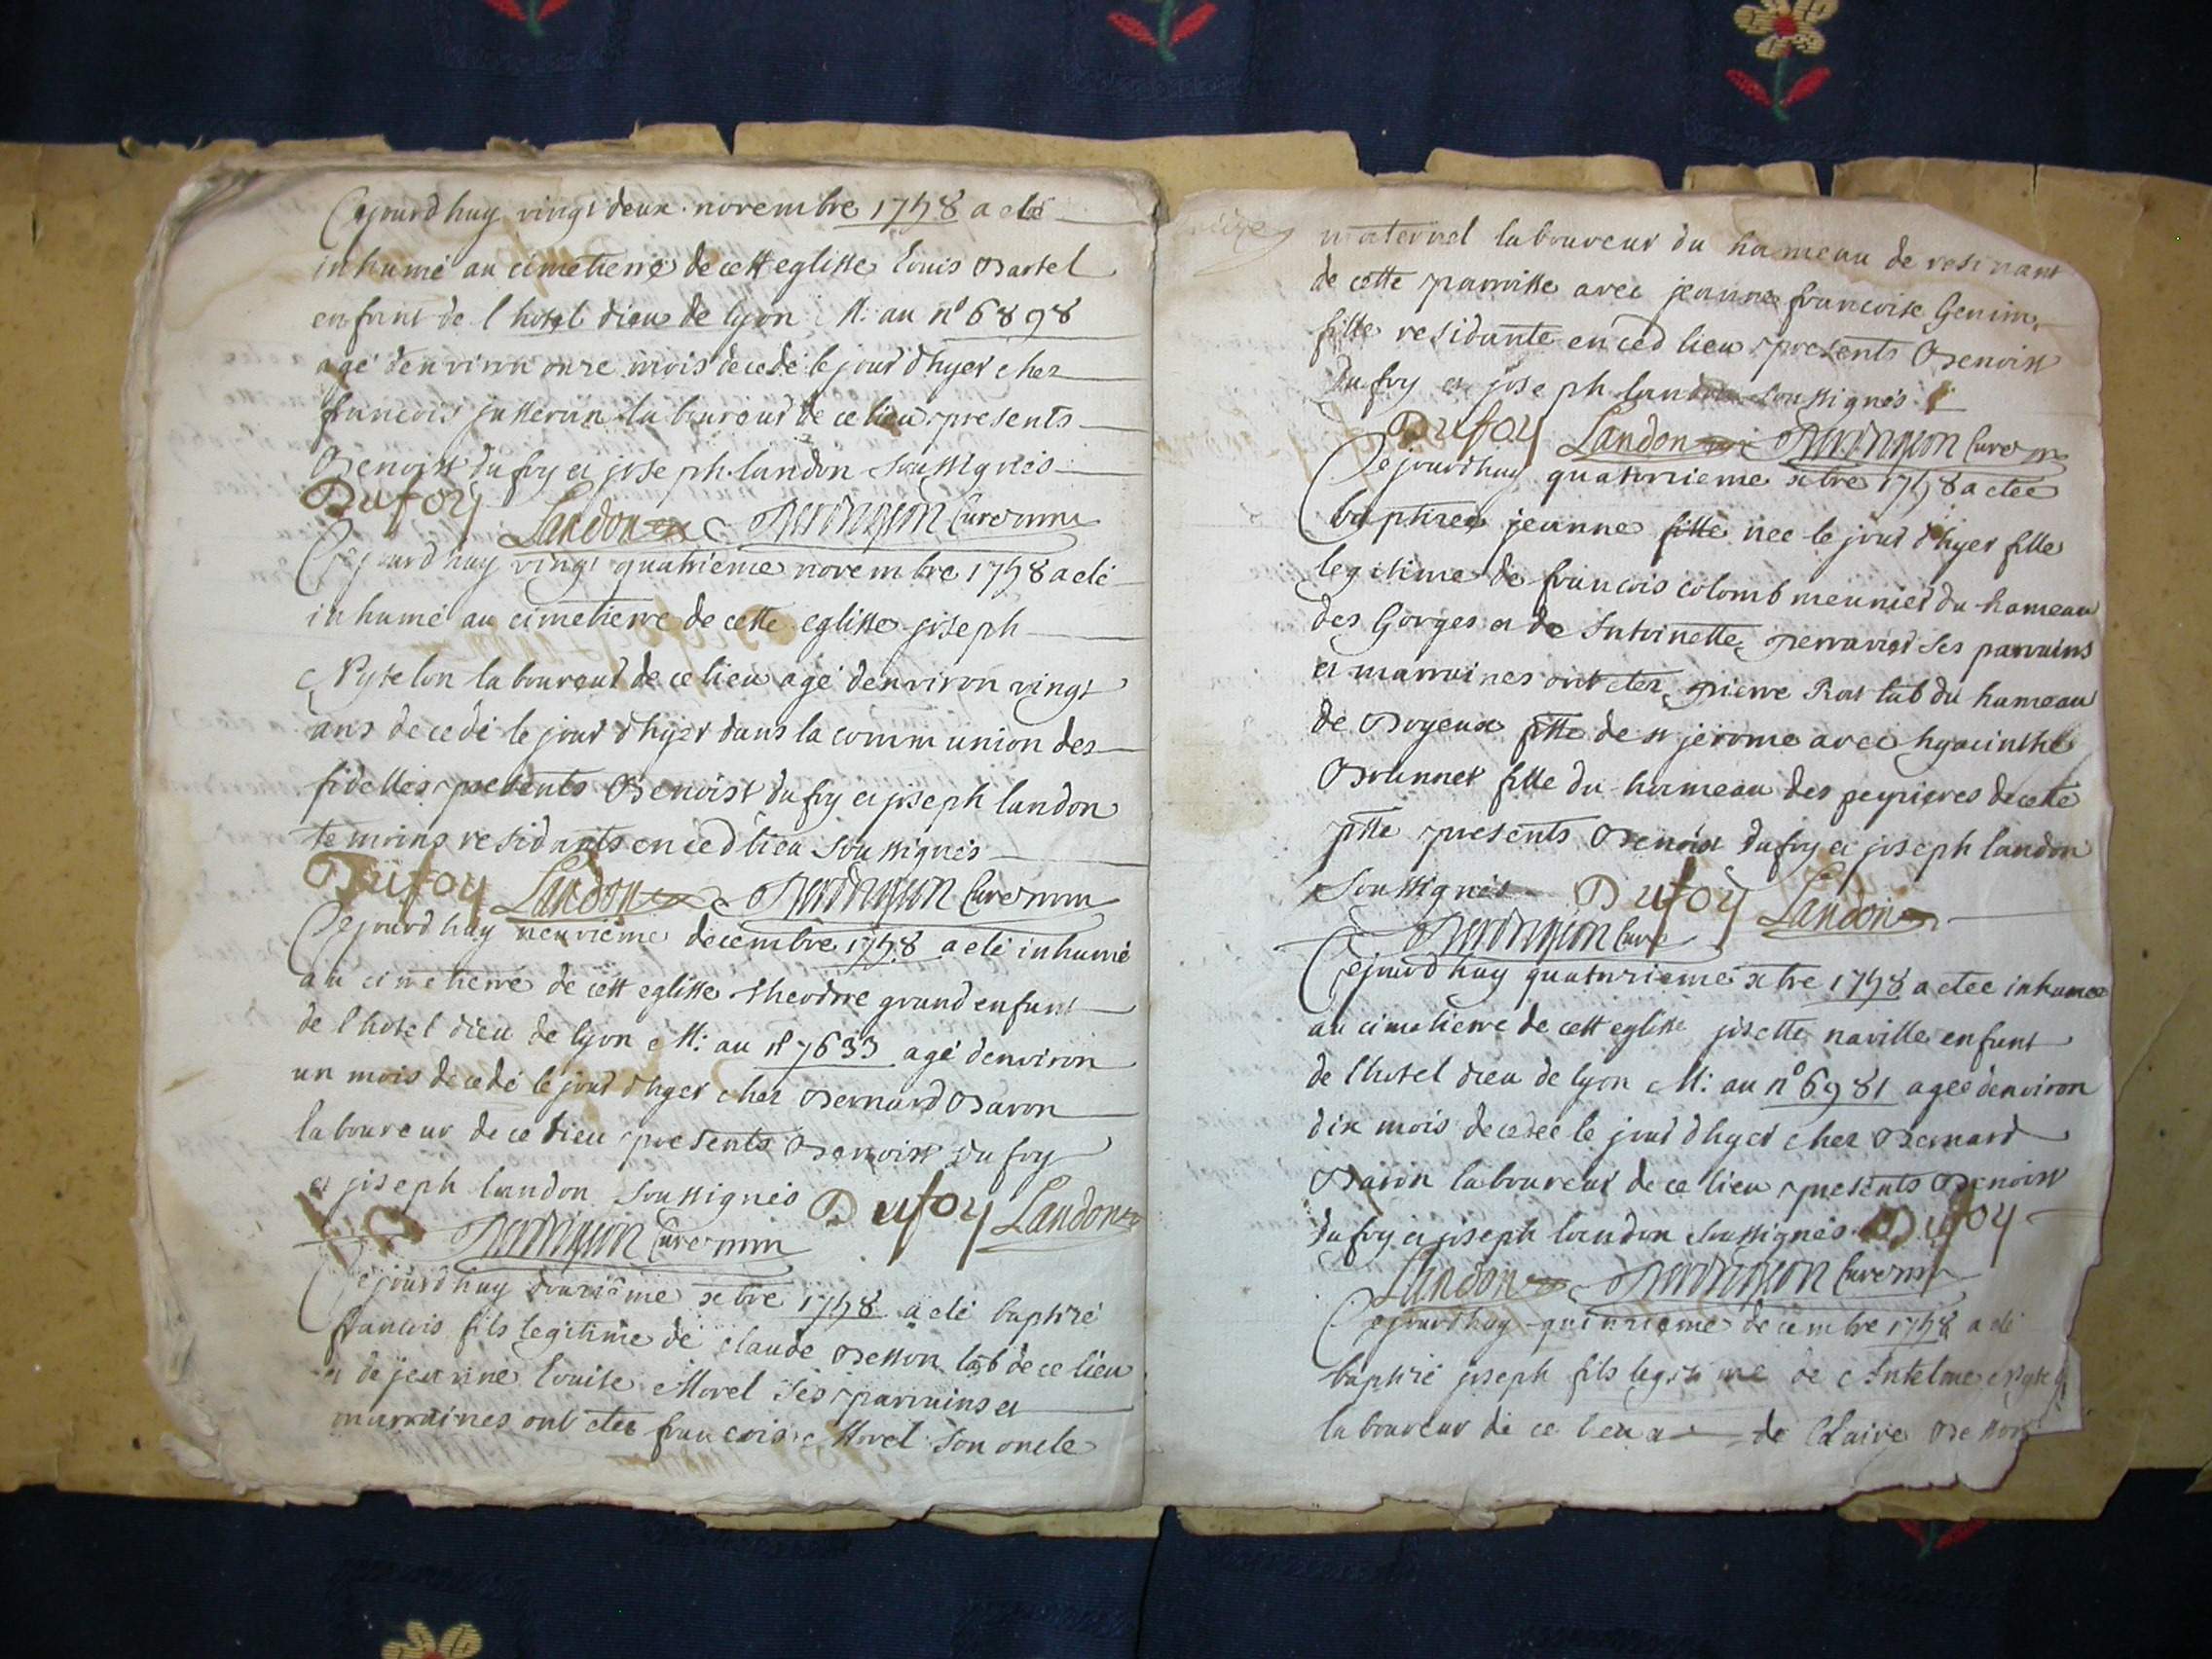 Cejourdhuy vingt deux novembre 1758 a eté
inhumé au cimetierre de cett eglisse louis Bartel
enfant de l hotel dieu de lyon M: au n° 6898
agé denviron onze mois decedé le jour dhyer chez
francois jusserun laboureur de ce lieu presents
Benoist dufoy et joseph landon soussignés
Dufoy Landon Curé
Cejourdhuy vingt quatrieme novembre 1758 a eté
inhumé au cimetierre de cette eglisse joseph
laboureur de ce lieu agé denviron vingt
ans decedé le jour dhyer dans la communion des
fidelles presents Benoist dufoy et joseph landon
temoins residants en ced lieu soussignés
Dufoy Landon Curé
Cejourdhuy neuvieme decembre 1758 a eté inhumé
au cimetierre de cett eglisse theodore grand enfant
de l hotel dieu de lyon M: au n° 7633 agé denviron
un mois decedé le jour dhyer chez Bernard Baron
laboureur de ce lieu presents Benoist dufoy
et joseph landon soussignés Dufoy Landon
Curé
Cejourdhuy douzieme xbre 1758 a eté baptizé
francois fils legitime de claude Besson lab de ce lieu
et de jeanne louise Morel ses parrains et
marraines ont etez francois Morel son oncle
maternel laboureur du hameau de resinant
de cette parroisse avec jeanne francoise Genin
fille residante en ced lieu presents Benoist
dufoy et joseph landon soussignés
Dufoy Landon Curé
Cejourdhuy quatorzieme xbre 1758 a etee
baptizee jeanne fille nee le jour dhyer fille
legitime de francois colomb meunier du hameau
des Gorges et de Antoinette perravier ses parrains
et marraines ont etez pierre lab du hameau
de Boyeux psse de st jerome avec hyacinthe
Brunner fille du hameau des peyrieres de cette
psse presents Benoist dufoy et joseph landon
soussignés Dufoy Landon
Curé
Cejourdhuy quatorzieme xbre 1758 a etee inhumee
au cimetierre de cett eglisse josette naville enfant
de l hotel dieu de lyon M: au n° 6981 agee denviron
dix mois decedee le jour dhyer chez Bernard
Baron laboureur de ce lieu presents Benoist
dufoy et joseph landon soussignés Dufoy
Landon Curé
Cejourdhuy quinzieme decembre 1758 a eté
baptizé joseph fils legitime de Antelme
laboureur de ce lieu et de Claire Besson